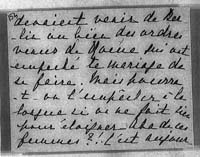 devaient venir de Ber
lin ou bien des ordres
venus de Rome qui ont
empêché le mariage de
se faire. Mais pourra
t-on l'empêcher à la
longue si on ne fait rien
pour éloigner
femmes? C'est aujour